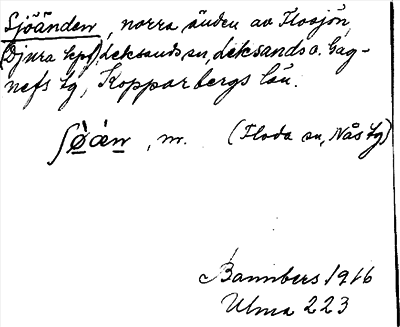 Sjöänden, norra änden av Flosjön,
(Djura kpf), Leksands sn, Leksands o. Gag-
nefs tg, Kopparbergs län.
ʃø̀æ̀n, m. (Floda sn, Nås tg)
Bannbers 1916
Ulma 223